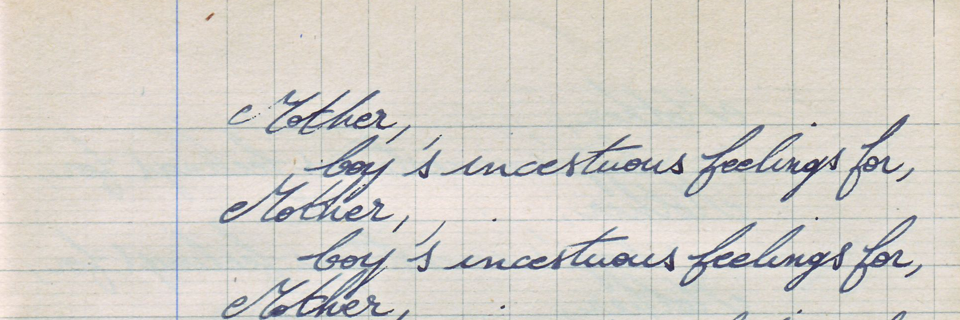 Mother,
boy's incestuous feelings for,
Mother,
boy's incestuous feelings for,
Mother,